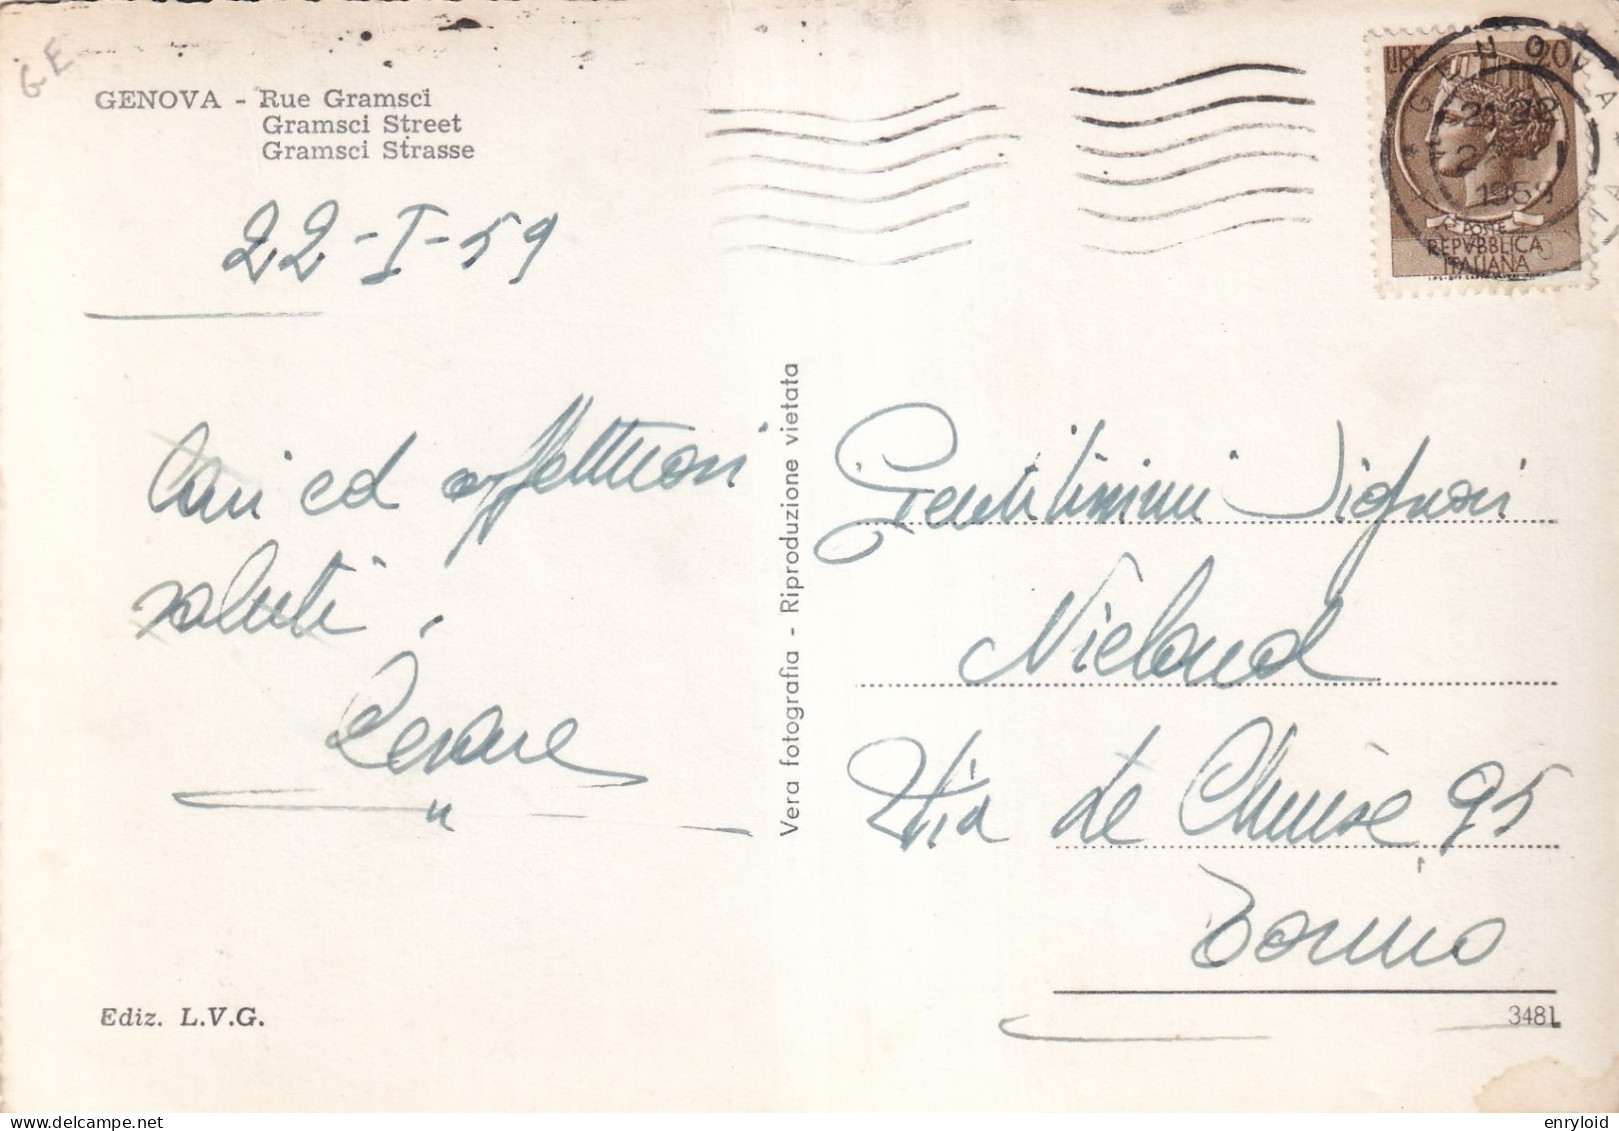 GE
GENOVA - Rue Gramsci
Gramsci Street
Gramsci Strasse
22-I-59
LIRE 20
POSTE
REPVBBLICA
ITALIANA
GENOVA
21-22
Cari ed affettuosi
saluti.
Cesare
Vera fotografia - Riproduzione vietata
Gentilissimi Signori
Nieland
Via Le Chiuse 95
Torino
Ediz. L.V.G.
3481
enryloid